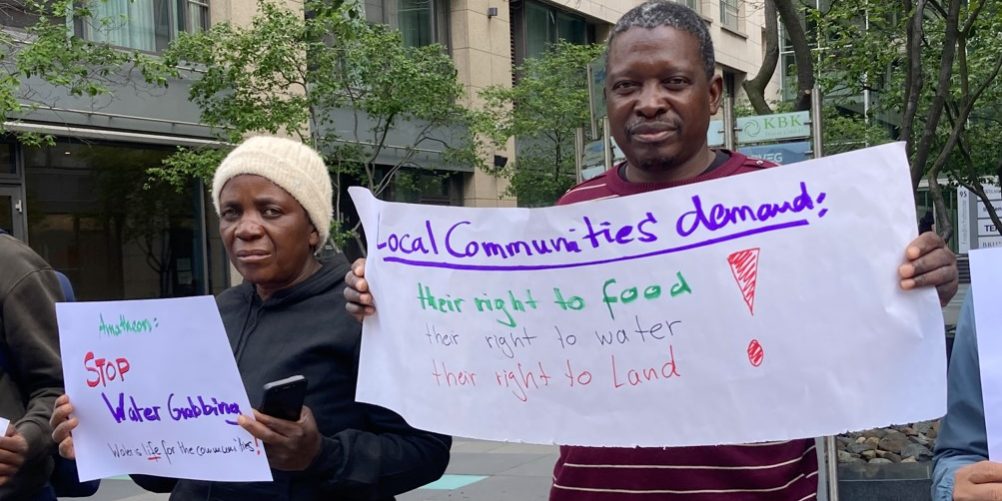 Amatheon:
STOP
Water Grabbing
Water is life for the communities!
Local Communities' demand:
their right to food
their right to water
their right to Land
!
KBK